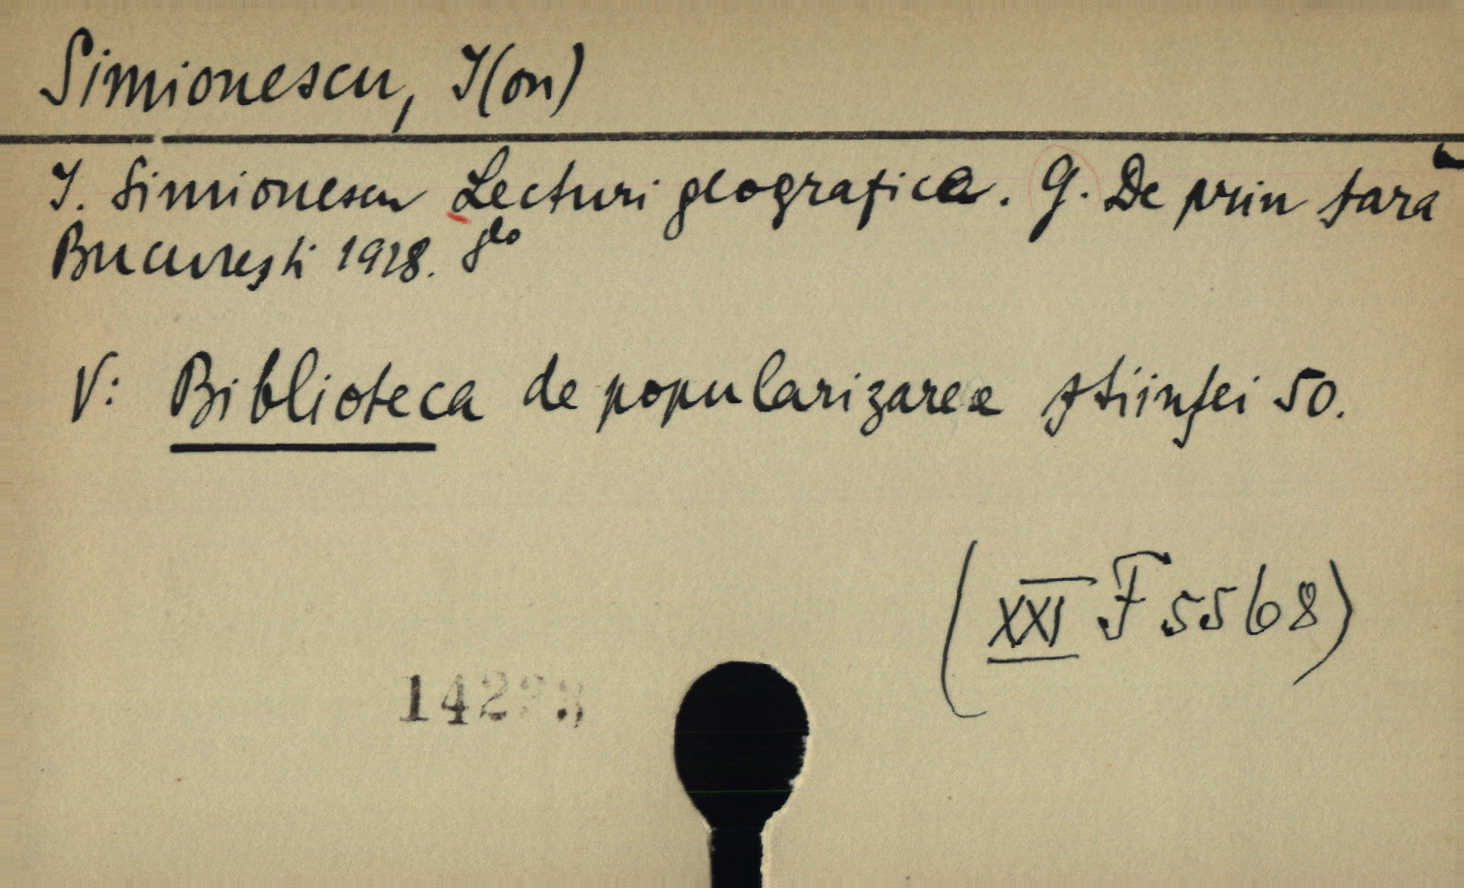 Simionescu, I(on)
I. Simionescu Lecturi geografice. G. De prin tară
București 1928. 8to
V: Biblioteca de popularizarea științei 50.
(XXI F 5568)